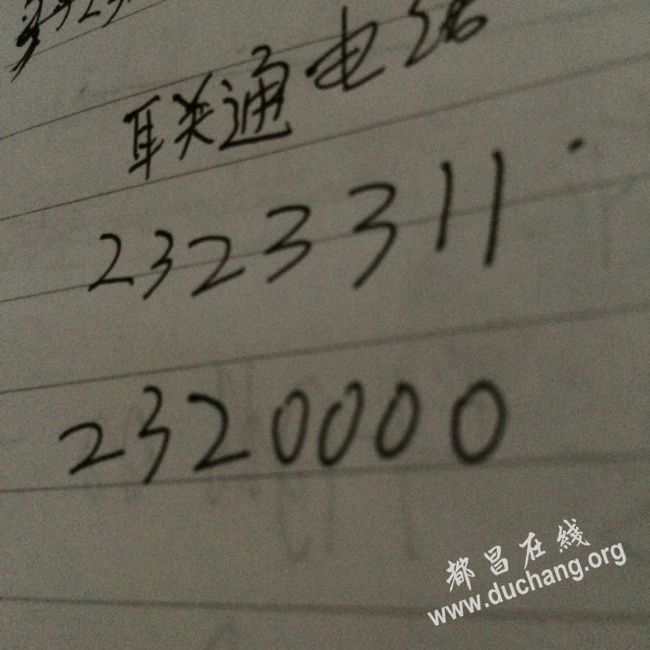 联通电话
2323311.
2320000
都昌在线
www.duchang.org